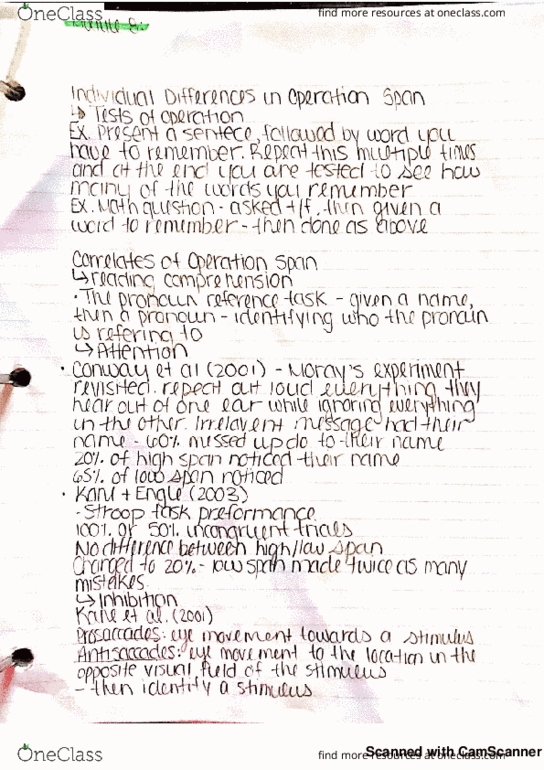 OneClass
find more resources at oneclass.com
Individual Differences in Operation Span
↳ Tests of operation
Ex. Present a sentece, followed by word you
have to remember. Repeat this multiple times
and at the end you are tested to see how
many of the words you remember
Ex. Math question - asked t/f, then given a
word to remember - then done as above
Correlates of Operation Span
↳ reading comprehension
· The pronoun reference task - given a name,
then a pronoun - identifying who the pronoun
is refering to
↳ Attention
· Conway et al (2001) - Moray's experiment
revisited. repeat out loud everything they
hear out of one ear while ignoring everything
in the other. Irrelavent message had their
name - 60% missed up do to their name
20% of high span noticed their name
65% of low span noticed
· Kane + Engle (2003)
- Stroop task preformance
100% or 50% incongruent trials
No difference between high/low span
Changed to 20% - low span made twice as many
mistakes
↳ Inhibition
Kane et al. (2001)
Prosaccades: eye movement towards a stimulus
Antisaccades: eye movement to the location in the
opposite visual field of the stimulus
- then identify a stimulus
OneClass
find more resources at oneclass.com
Scanned with CamScanner